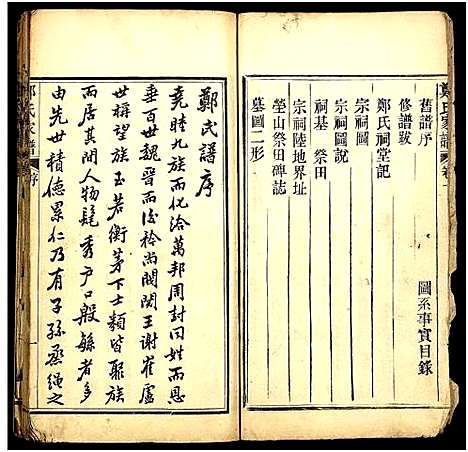 鄭氏家譜 卷一
圖系事實目錄
舊譜序
修譜跋
鄭氏祠堂記
宗祠圖
宗祠圖說
祠基 祭田
宗祠陸地界址
瑩山祭田碑誌
墓圖二形
鄭氏譜序
堯睦九族而化洽萬邦周封同姓而恩
舉百世魏晋而後於尚閥閱王謝崔盧
世稱望族玉若衡茅下士類皆聚族
而居其間人物髦秀户口殷繇者多
由先世積德累仁乃有子孫烝繩之
鄭氏家譜 序